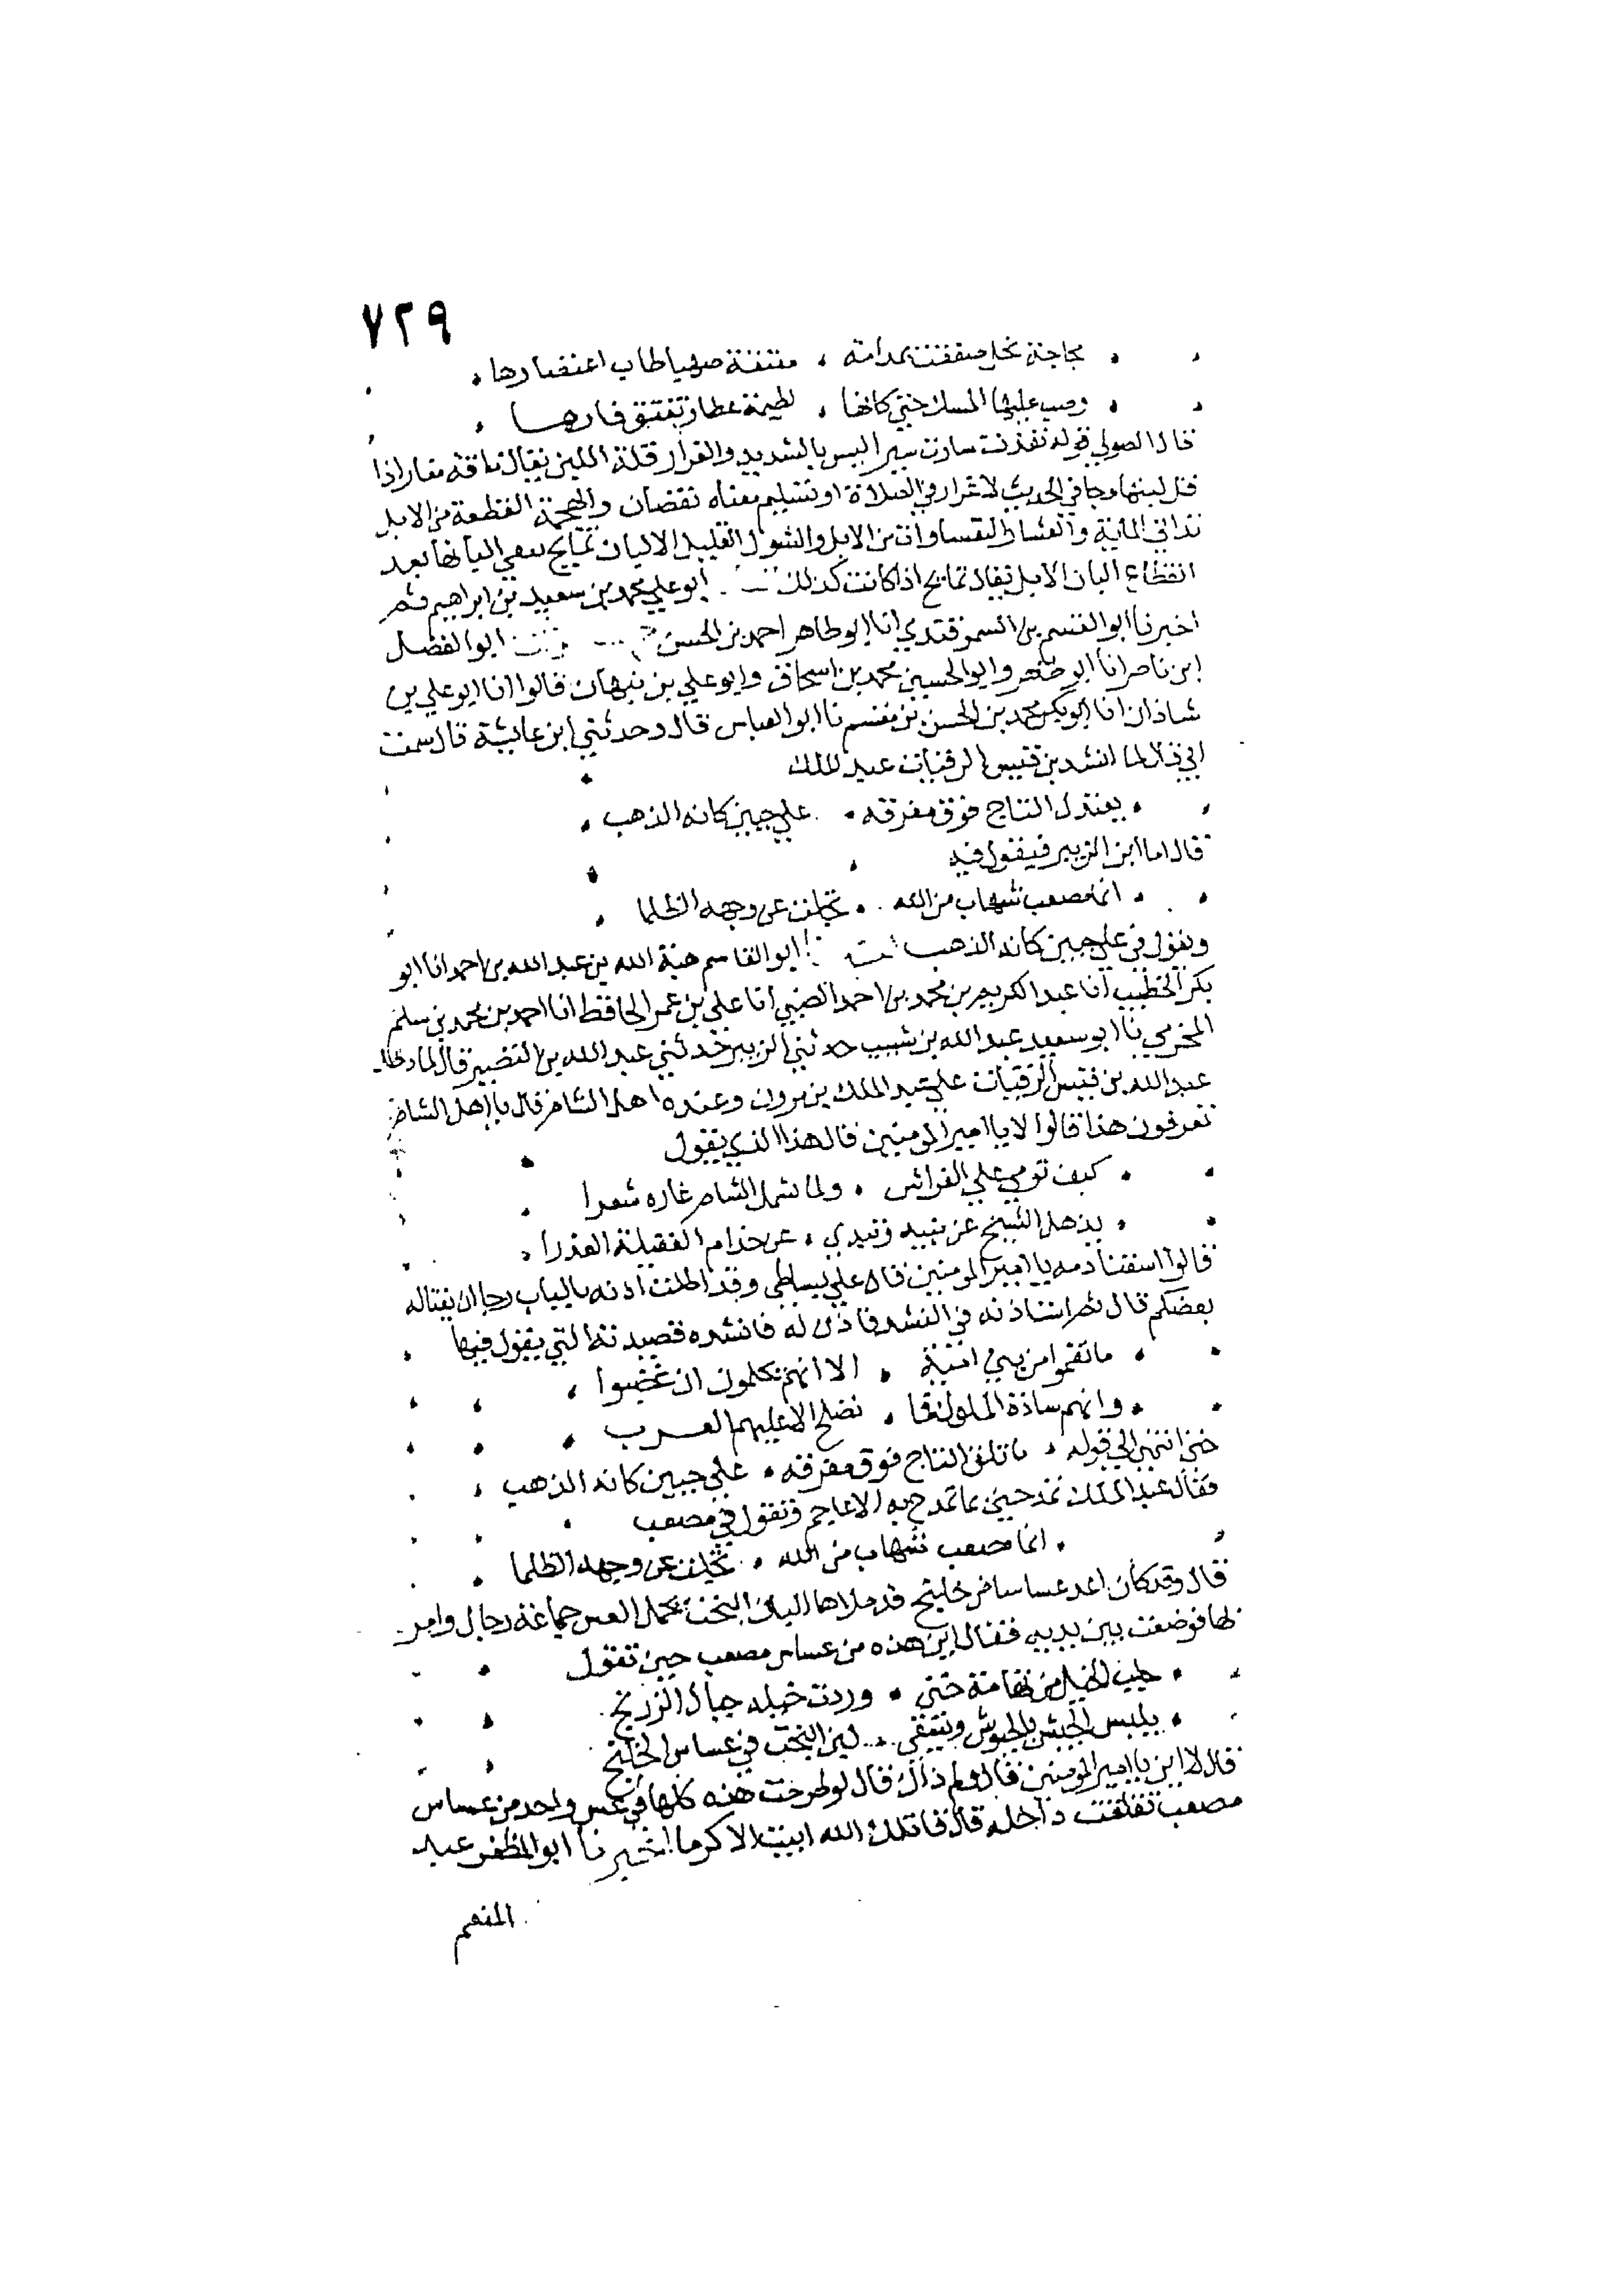 ٧٢٩
مجاجة نحل صفقت بمدامة ، معتقة صهبا طاب اعتصارها
وصب عليها المسك حتى كانها ، لطيمة عطار تفتق فارها
قال الصولي قوله نفذت سارت سير اليس بالشديد والغرار قلة اللبن يقال ناقة مغار اذا
قل لبنها وجا في الحديث لا غرار في الصلاة او تسليم معناه نقصان والهجمة القطعة من الابل
تداني المائية والشول القليل الالبان تمايح يعني البانها بعد
انقطاع البان الابل يقال تمايح اذا كانت كذلك ابو علي محمد بن سعيد بن ابراهيم ثم
اخبرنا ابو القسم بن السمرقندي انا ابو طاهر احمد بن الحسن ابو الفضل
ابن ناصر انا ابو طاهر وابو الحسين محمد بن اسحاق وابو علي بن نبهان قالوا انا ابو علي بن
شاذان انا ابو بكر محمد بن الحسن بن مقسم نا ابو العباس قال وحدثني ابن عايشة قال سمعت
ابي قال لما انشد بن قيس الرقيات عبد الملك
يعتدل التاج فوق مفرقه ، علي جبين كانه الذهب
قال اما ابن الزبير فيقول فيه
انما مصعب شهاب من الله ، تجلت عن وجهه الظلما
ويقول في علي جبين كانه الذهب ابو القاسم هبة الله بن عبد الله بن احمد انا ابو
بكر الخطيب انا عبد الكريم بن محمد بن احمد الضبي انا علي بن عمر الحافظ انا احمد بن محمد بن سلم
المخرمي نا ابو سعيد عبد الله بن شبيب حدثني الزبير حدثني عبد الله بن النضير قال لما دخل
عبد الله بن قيس الرقيات علي عبد الملك بن مروان وعنده اهل الشام قال يا اهل الشام
تعرفون هذا قالوا لا يا امير المومنين قال هذا الذي يقول
كيف نومي علي الفراش ، ولما تشمل الشام غاره شعوا
يذهل الشيخ عن بنيه وتبدي ، عن خدام العقيلة العذرا
قالوا اسقنا دمه يا امير المومنين قال علي بساطي وقد اطلت اذنه بالباب رجا ان يقتاله
بعضكم قال ثم استاذنه في النشد فاذن له فانشده قصيدته التي يقول فيها
ما نقموا من بني امية ، الا انهم يحلمون ان غضبوا
وانهم سادة الملوك فما ، تصلح الا عليهم العرب
حتى انتهى الي قوله ، ياتلق التاج فوق مفرقه ، علي جبين كانه الذهب
فقال عبد الملك تمدحني بما تمدح به الاعاجم وتقول في مصعب
انما مصعب شهاب من الله ، تجلت عن وجهه الظلما
قال وقد كان اعد عساسا من خلنج قد ملاها البان البخت يحمل العس جماعة رجال وامر
بها فوضعت بين يديه فقال اين هذه من عساس مصعب حين تقول
جلب الخيل من تهامة حتي ، وردت خيله جبال الزريح
يلبس الجيش بالجيوش ويسقي ، لبن البخت في عساس الخلنج
قال لا اين يا امير المومنين قال ولم ذاك قال لو طرحت هذه كلها في عس واحد من عساس
مصعب تقلقت داخله قال قاتلك الله ابيت الا كرما اخبرنا ابو المظفر عبد
المنعم